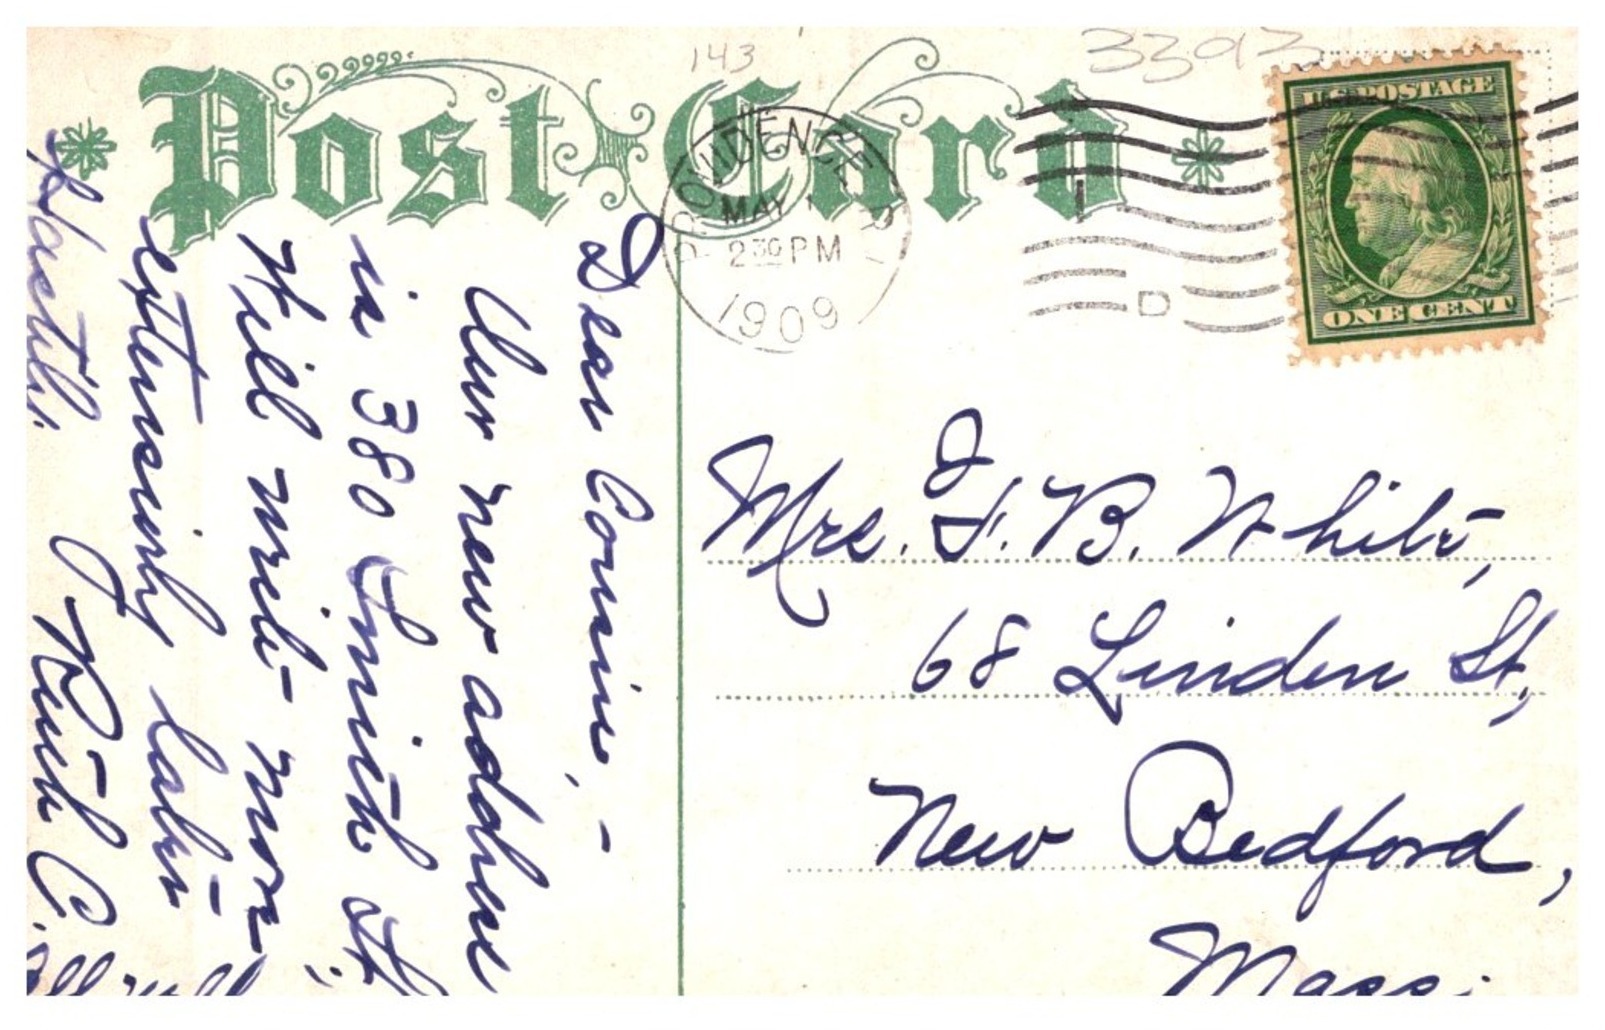 143
3393
Post Card
PROVIDENCE R.I.
MAY 1
2 30 PM
1909
D
U.S. POSTAGE
ONE CENT
Dear Connie, -
Our new address
is 380 Smith St.
Will write more
extensively later
Hastily.
Ruth C.
Mrs. F. B. White,
68 Linden St,
New Bedford,
Mass.